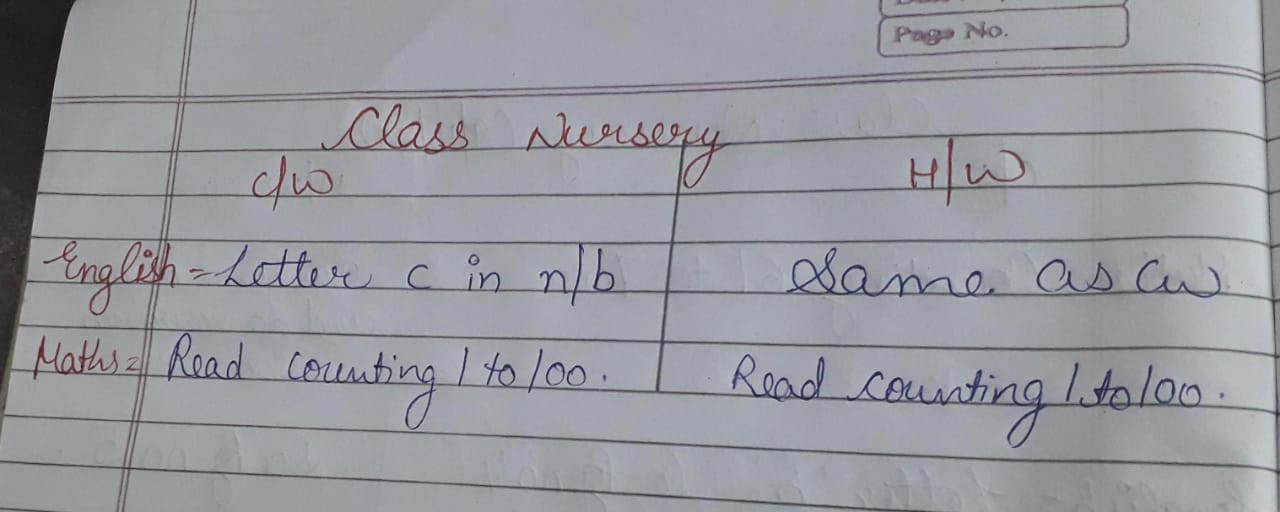 Page No.
Class Nursery
C/W H/W
English = Letter c in n/b Same as cw
Maths = Read counting 1 to 100. Read counting 1 to 100.